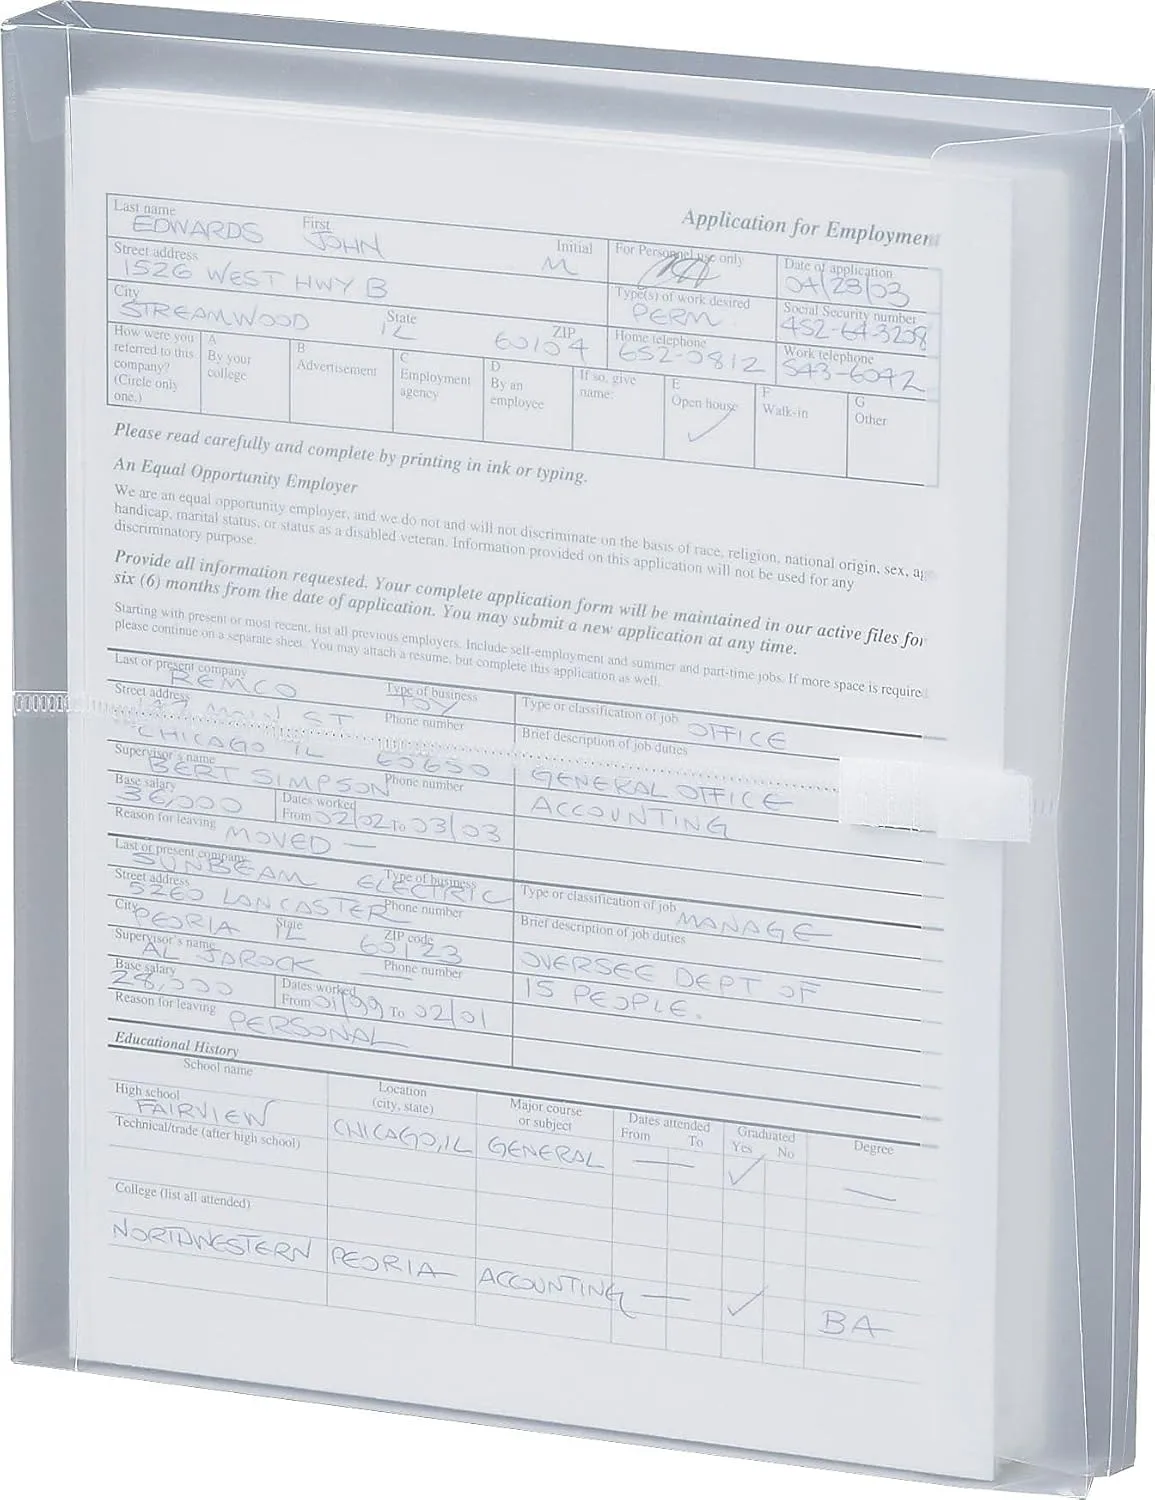 Application for Employment
Last name First Initial
EDWARDS JOHN M
For Personnel use only
Date of application
04/23/03
Street address
1526 WEST HWY B
Type(s) of work desired
PERM.
Social Security number
452-64-3208
City State ZIP
STREAMWOOD IL 60104
Home telephone
652-0812
Work telephone
543-6042
How were you referred to this company? (Circle only one.)
A By your college
B Advertisement
C Employment agency
D By an employee
If so, give name:
E Open house ✓
F Walk-in
G Other
Please read carefully and complete by printing in ink or typing.
An Equal Opportunity Employer
We are an equal opportunity employer, and we do not and will not discriminate on the basis of race, religion, national origin, sex,
handicap, marital status, or status as a disabled veteran. Information provided on this application will not be used for any
discriminatory purpose.
Provide all information requested. Your complete application form will be maintained in our active files for
six (6) months from the date of application. You may submit a new application at any time.
Starting with present or most recent, list all previous employers. Include self-employment and summer and part-time jobs. If more space is require
please continue on a separate sheet. You may attach a resume, but complete this application as well.
Last or present company Type of business
REMCO TOY
Type or classification of job OFFICE
Street address Phone number
MAIN ST
Brief description of job duties
CHICAGO IL 60650
GENERAL OFFICE
Supervisor's name Phone number
BERT SIMPSON
ACCOUNTING
Base salary
36,000
Dates worked
From 02/02 To 03/03
Reason for leaving MOVED —
Last or present company Type of business
SUNBEAM ELECTRIC
Type or classification of job MANAGE
Street address Phone number
5260 LANCASTER
Brief description of job duties
City State ZIP code
PEORIA IL 60123
OVERSEE DEPT OF
Supervisor's name Phone number
AL JAROCK —
15 PEOPLE.
Base salary
28,000
Dates worked
From 01/99 To 02/01
Reason for leaving PERSONAL
Educational History
School name
Location (city, state)
Major course or subject
Dates attended From To
Graduated Yes No
Degree
High school
FAIRVIEW CHICAGO, IL GENERAL — ✓ —
Technical/trade (after high school)
College (list all attended)
NORTHWESTERN PEORIA ACCOUNTING — ✓ BA